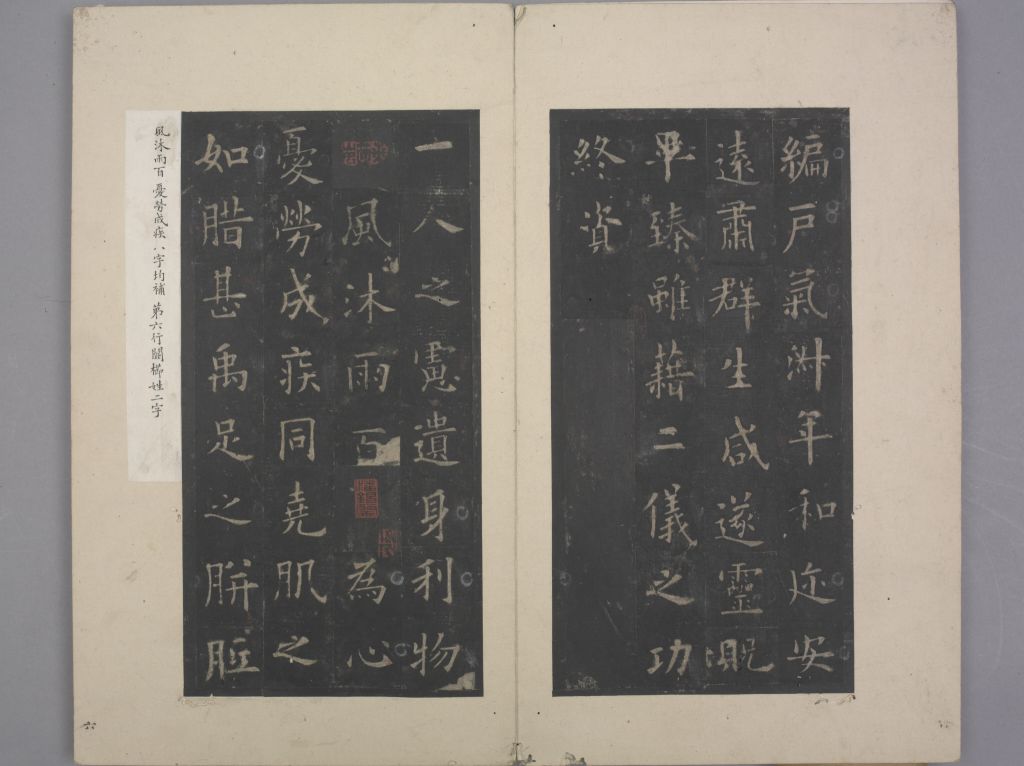 編戶氣淋年和迩安
遠肅群生咸遂靈貺
畢臻雖藉二儀之功
終資
一人之慮遺身利物
風沐雨百為心
憂勞成疾同堯肌之
如腊甚禹足之胼胝
風沐雨百憂勞成疾八字均補第六行闕櫛姓二字